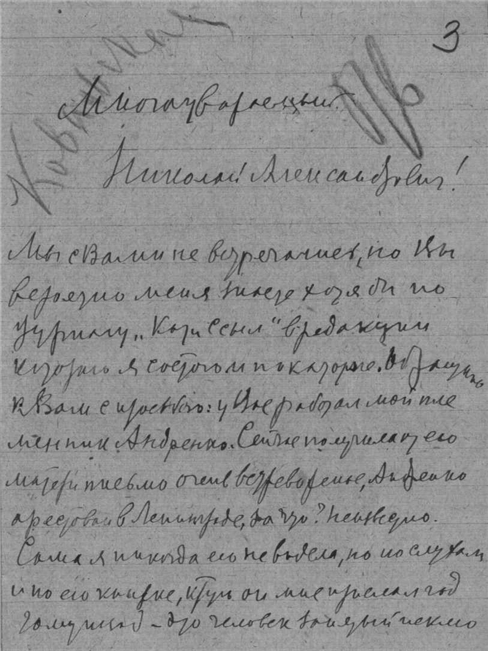 3
Многоуважаемый
Николай Александрович!
Мы с Вами не встречались, но Вы
вероятно меня знаете хотя бы по
журналу „Кат. и ссыл“ в редакции
которого я состою и по каторге. Обращаюсь
к Вам с просьбой: у Вас работал мой пле
мянник Андренко. Сейчас получила от его
матери письмо очень встревоженное, Андренко
арестован в Ленинграде, за что? Неизвестно.
Сама я никогда его не видела, но по слухам
и по его книжке, к-рую он мне прислал год
тому назад – это человек